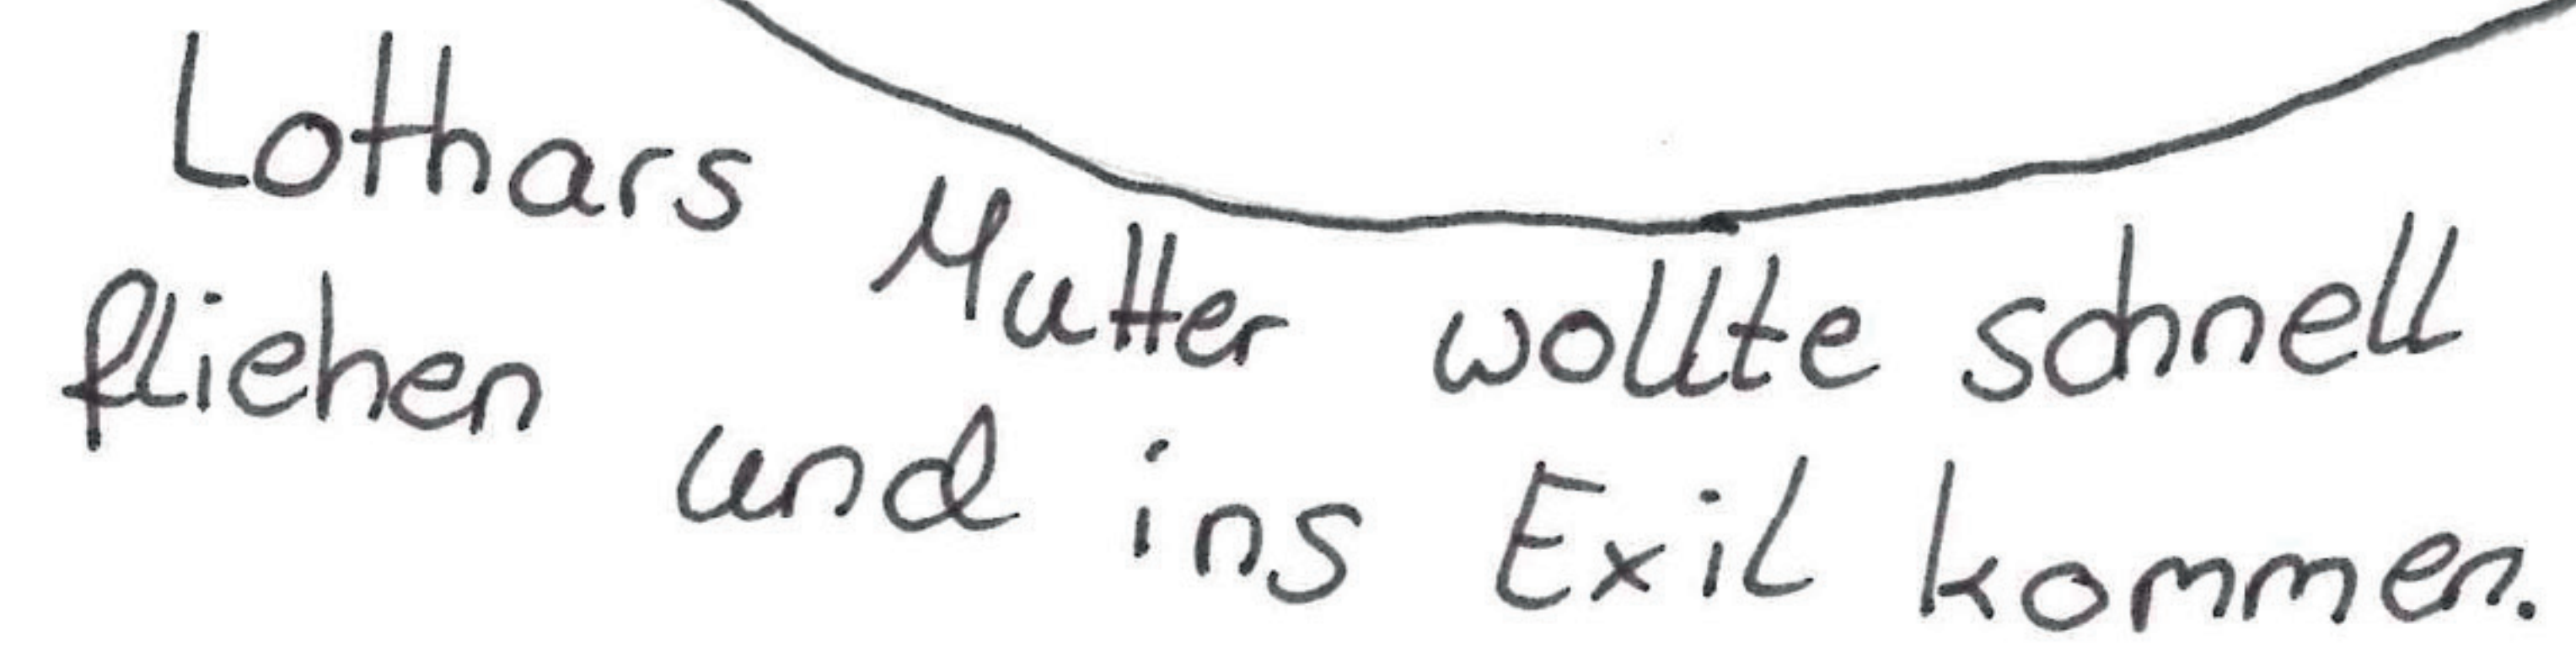 Lothars Mutter wollte schnell
fliehen und ins Exil kommen.